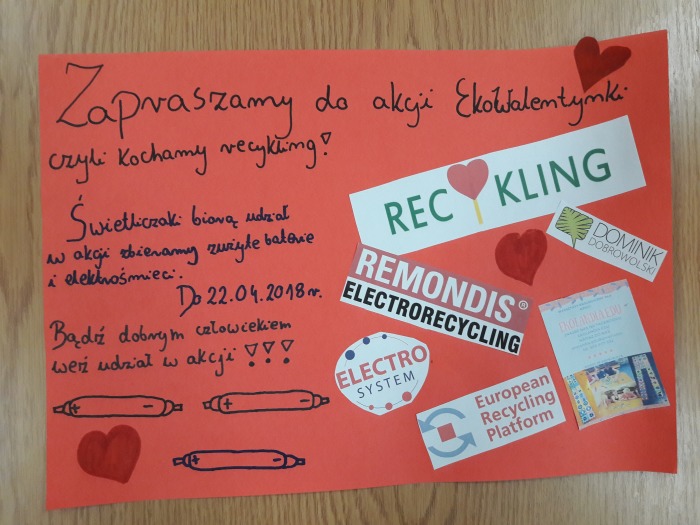 Zapraszamy do akcji EkoWalentynki
czyli kochamy recykling!
Świetliczaki biorą udział
w akcji zbieramy zużyte baterie
i elektrośmieci.
Do 22.04.2018 r.
Bądź dobrym człowiekiem
weź udział w akcji!!!
+ -
+ -
+ -
REC KLING
DOMINIK
DOBROWOLSKI
REMONDIS®
ELECTRORECYCLING
ELECTRO
SYSTEM
European
Recycling
Platform